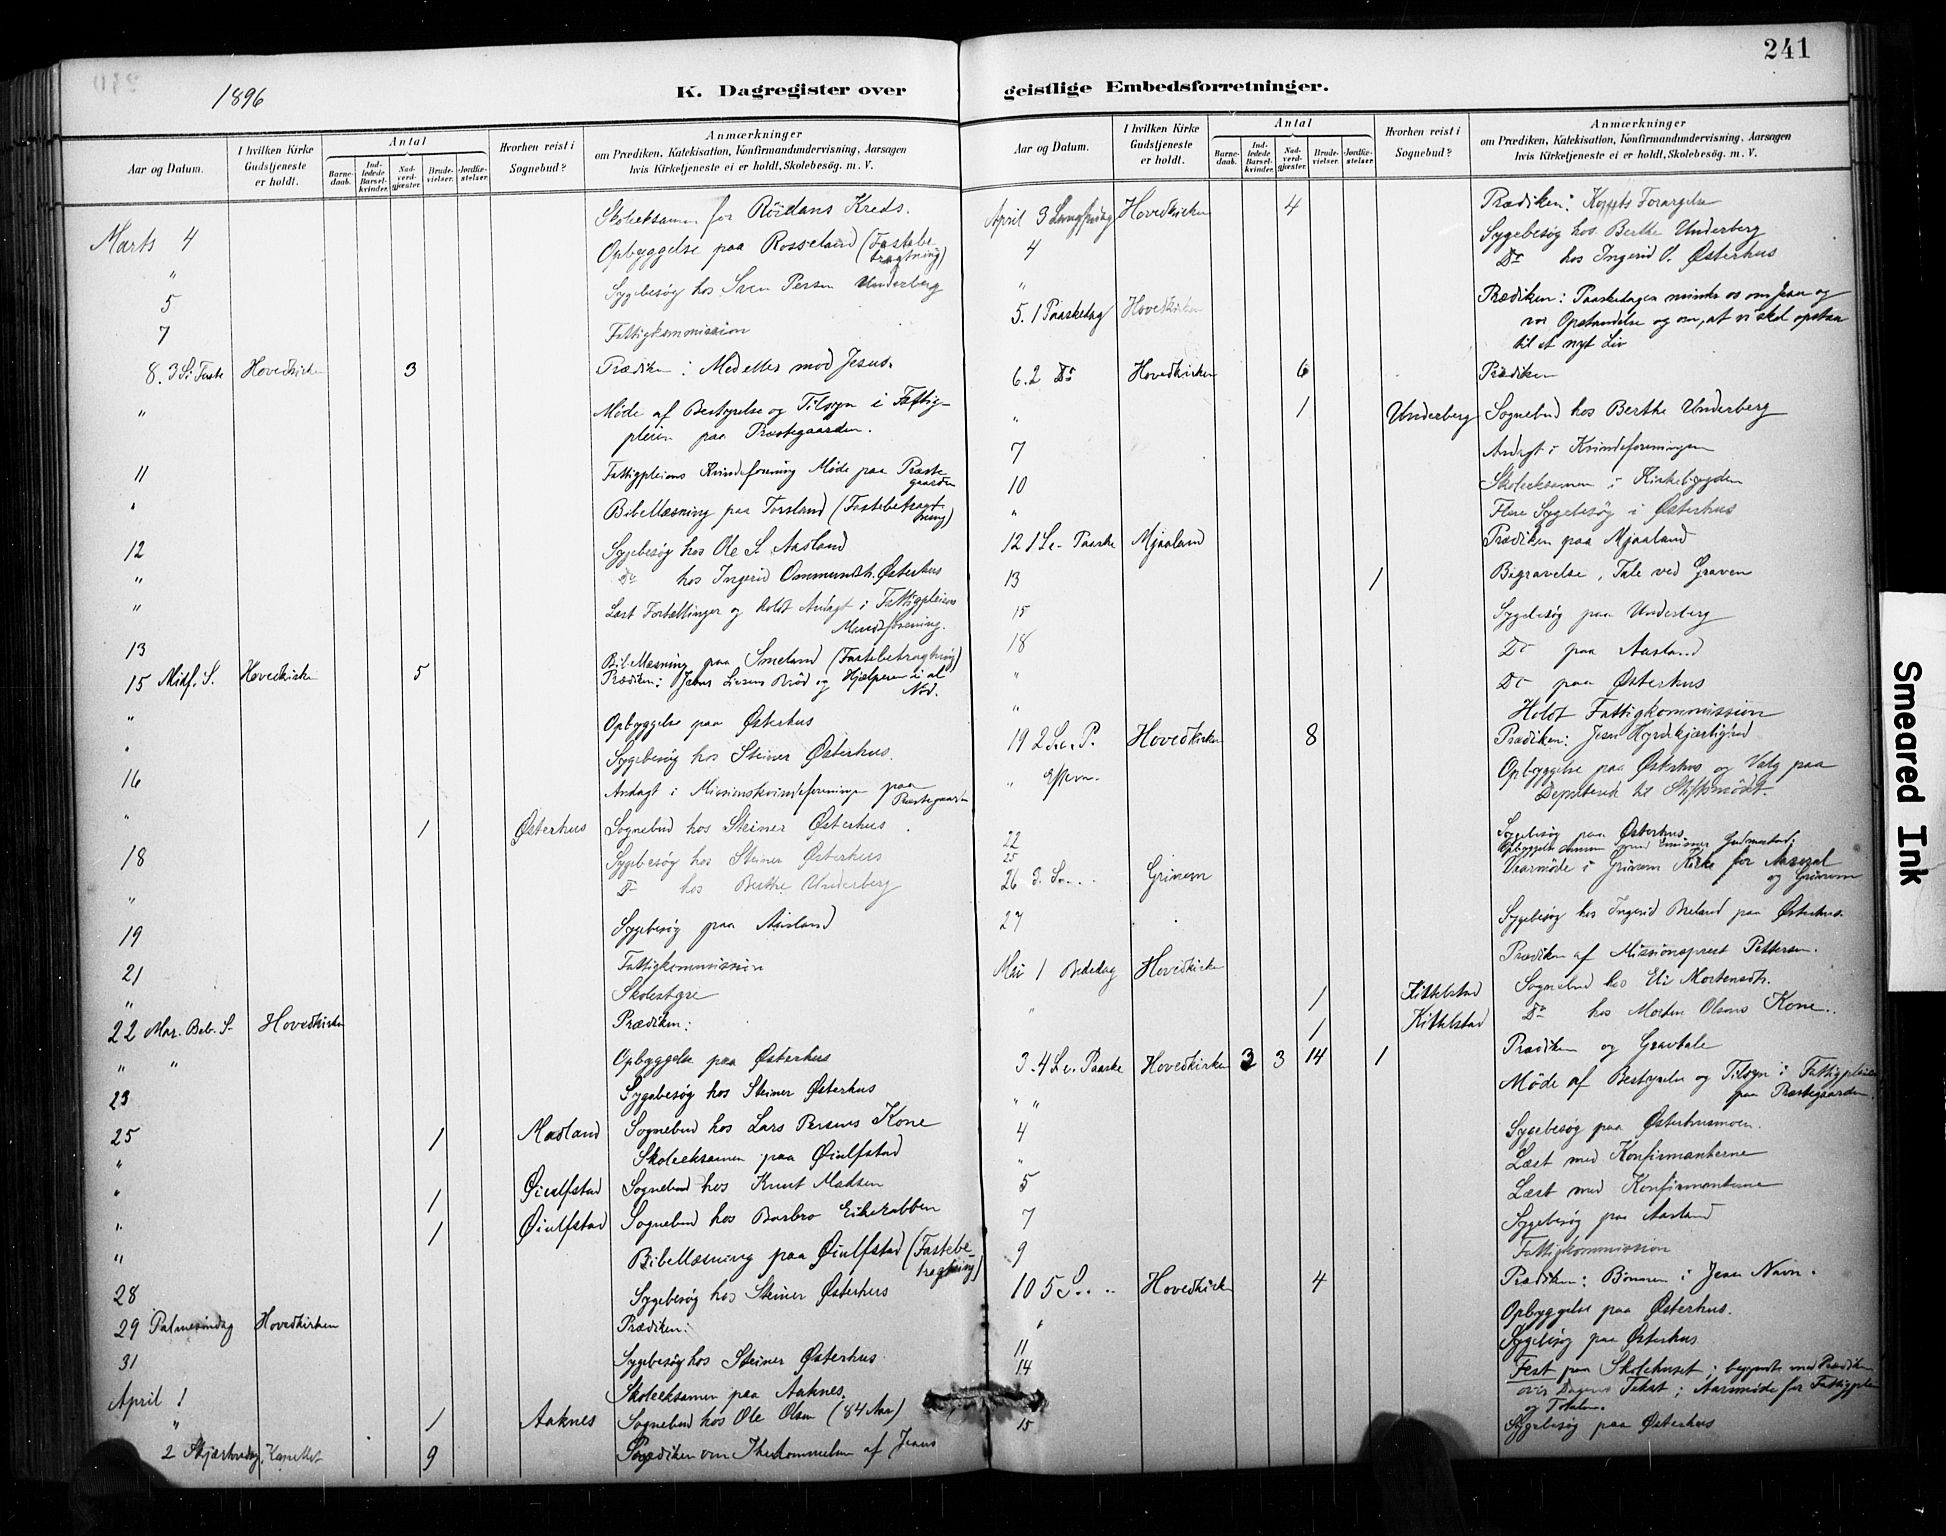 241
1896
K. Dagregister over
geistlige Embedsforretninger.
Aar og Datum.
I hvilken Kirke Gudstjeneste er holdt.
Antal
Barnedaab.
Indledede Barselkvinder.
Nadverdgjæster.
Brudevielser.
Jordfæstelser.
Hvorhen reist i Sognebud?
Anmærkninger
om Prædiken, Katekisation, Konfirmandundervisning, Aarsagen
hvis Kirketjeneste ei er holdt, Skolebesøg. m. V.
Skoleeksamen for Röidans Kreds.
Marts 4 Opbyggelse paa Rosseland (Fastebetragtning)
" Sygebesøg hos Sven Persen Underberg
5
7 Fattigkommission
8. 3 S. i Faste Hovedkirken 3 Prædiken: Med eller mod Jesus.
" Møde af Bestyrelse og Tilsyn i Fattigpleien paa Præstegaarden.
11 Fattigpleiens Kvindeforening Møde paa Præstegaarden
" Bibellæsning paa Torsland (Fastebetragtning)
12 Sygebesøg hos Ole S. Aasland
" Do hos Ingerid Ommundsth. Østerhus
" Læst Fortællinger og holdt Andagt i Fattigpleiens Mandsforening.
13 Bibellæsning paa Smeland (Fastebetragtning)
15 Midf. S. Hovedkirke 5 Prædiken: Jesus Livsens Brød og Hjælperen i al Nød.
" Opbyggelse paa Østerhus
" Sygebesøg hos Steiner Østerhus.
16 Andagt i Missionskvindeforeninge paa Præstegaarden
" 1 Østerhus Sognebud hos Steiner Østerhus
18 Sygebesøg hos Steiner Østerhus
" Do hos Berthe Underberg
19 Sygebesøg paa Aasland
21 Fattigkommission
" Skolestyre
22 Mar. Beb. S. Hovedkirken Prædiken:
" " Opbyggelse paa Østerhus
23 Sygebesøg hos Steiner Østerhus
25 1 Masland Sognebud hos Lars Persens Kone
" Skoleeksamen paa Øiulfstad
" 1 Øiulfstad Sognebud hos Knut Madsen
" 1 Øiulfstad Sognebud hos Barbro Eikerabben
" Bibellæsning paa Øiulfstad (Fastebetragtning)
28 Sygebesøg hos Steiner Østerhus
29 Palmesøndag Hovedkirken Prædiken:
31 Sygebesøg hos Steiner Østerhus
April 1 Skoleeksamen paa Aaknes.
" 1 Aaknes Sognebud hos Ole Olsen (84 Aar)
2 Skjærtorsdag Kapellet 9 Prædiken om Ihukommelsen af Jesus
Aar og Datum.
I hvilken Kirke Gudstjeneste er holdt.
Antal
Barnedaab.
Indledede Barselkvinder.
Nadverdgjæster.
Brudevielser.
Jordfæstelser.
Hvorhen reist i Sognebud?
Anmærkninger
om Prædiken, Katekisation, Konfirmandundervisning, Aarsagen
hvis Kirketjeneste ei er holdt, Skolebesøg. m. V.
April 3 Langfredag Hovedkirken 4 Prædiken: Korsets Forargelse
4 Sygebesøg hos Berthe Underberg
" Do hos Ingerid O. Østerhus
5. 1 Paaskedag Hovedkirken Prædiken: Paaskedagen minder os om Jesu og
vor Opstandelse og om, at vi skal opstaa
til et nyt Liv
6. 2 Do Hovedkirken 6 Prædiken
" 1 Underberg Sognebud hos Berthe Underberg
7 Andagt i Kvindeforeningen
10 Skoleeksamen i Kirkebygden
" Flere Sygebesøg i Østerhus
12 1 S. e. Paaske Mjaaland Prædiken paa Mjaaland
13 1 Begravelse, Tale ved Graven
15 Sygebesøg paa Underberg
18 Do paa Aasland
" Do paa Østerhus
" Holdt Fattigkommission
19 2 S. e. P. Hovedkirken 8 Prædiken: Jesu Hyrdekjærlighed
" Efterm. Opbyggelse paa Østerhus og Valg paa
Deputerede til Stiftsmødet.
22 Sygebesøg paa Østerhus
25 Opbyggelse sammen med Gudmestad;
26 3. S. . . Grinem Vaarmøde i Grinem Kirke for Aaseral og Grinem
27 Sygebesøg hos Ingerid Breland paa Østerhus.
Mai 1 Bededag Hovedkirken Prædiken af Missionsprest Pettersen.
" 1 Kittelstad Sognebud hos Eli Mortensdt.
1 Kittelstad Do hos Morten Olsens Kone.
3. 4 S. e. Paaske Hovedkirken 3 3 14 1 Prædiken og Gravtale
" " Møde af Bestyrelse og Tilsyn i Fattigpleien
paa Præstegaarden.
4 Sygebesøg paa Østerhusmoen.
" Læst med Konfirmanterne
5 Læst med Konfirmanterne
7 Sygebesøg paa Aasland
9 Fattigkommission
10 5 S. . . Hovedkirk 4 Prædiken: Bønnen i Jesu Navn.
" Opbyggelse paa Østerhus.
11 Sygebesøg paa Østerhus
14 Fest paa Skolehuset; begyndte med Prædiken
over Dagens Tekst; Aarsmøde for Fattigpleien
og Totalen.
15 Sygebesøg paa Østerhus
Smeared Ink